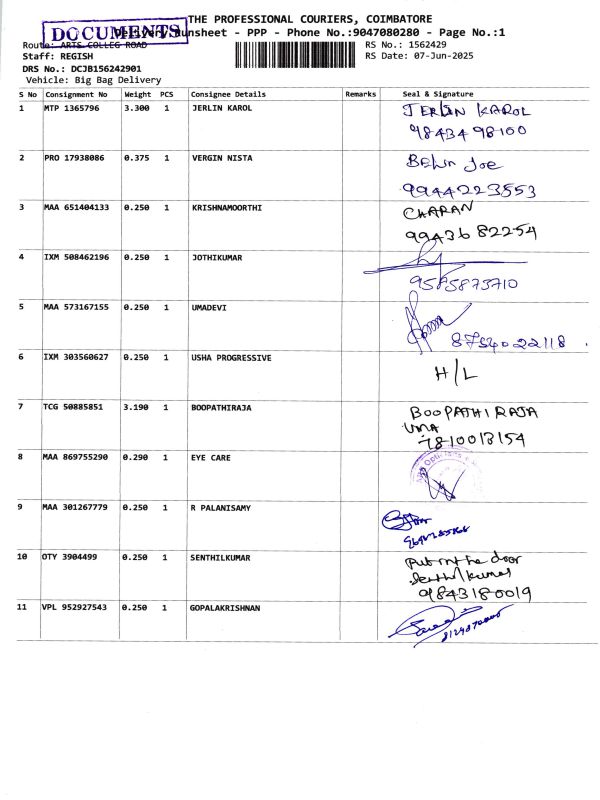 THE PROFESSIONAL COURIERS, COIMBATORE
DOCUMENTS
Delivery Runsheet - PPP - Phone No.:9047080280 - Page No.:1
Route: ARTS COLLEG ROAD RS No.: 1562429
Staff: REGISH RS Date: 07-Jun-2025
DRS No.: DCJB156242901
Vehicle: Big Bag Delivery
S No Consignment No Weight PCS Consignee Details Remarks Seal & Signature
1 MTP 1365796 3.300 1 JERLIN KAROL JERLIN KAROL
98434 98100
2 PRO 17938086 0.375 1 VERGIN NISTA BELIN Joe
9944223553
3 MAA 651404133 0.250 1 KRISHNAMOORTHI CHARAN
99436 82254
4 IXM 508462196 0.250 1 JOTHIKUMAR
9585873710
5 MAA 573167155 0.250 1 UMADEVI
8754022118
6 IXM 303560627 0.250 1 USHA PROGRESSIVE H/L
7 TCG 50885851 3.190 1 BOOPATHIRAJA BOOPATHI RAJA
UMA
7810013154
8 MAA 869755290 0.290 1 EYE CARE
9 MAA 301267779 0.250 1 R PALANISAMY
10 OTY 3904499 0.250 1 SENTHILKUMAR Put in the door
Senthil kumar
9843180019
11 VPL 952927543 0.250 1 GOPALAKRISHNAN